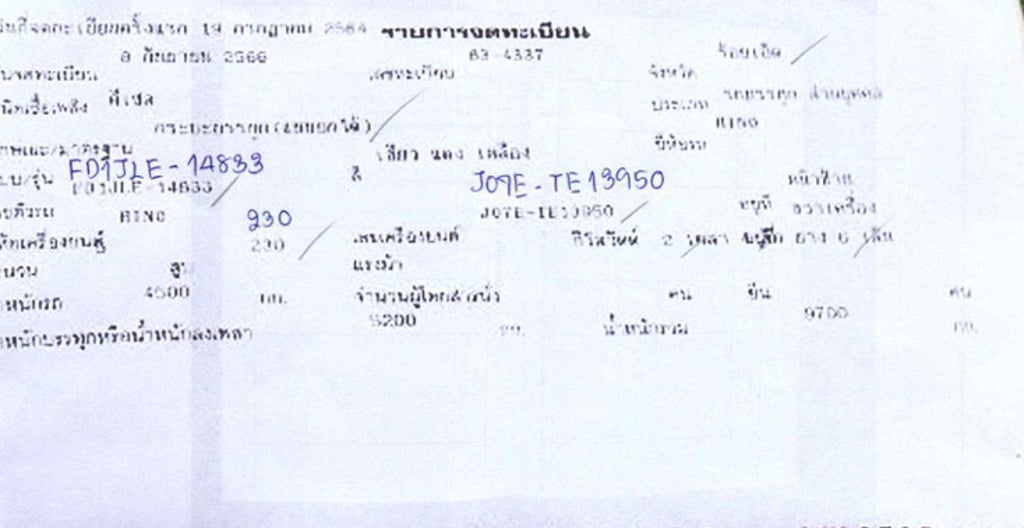 วันที่จดทะเบียนครั้งแรก 19 กรกฎาคม 2564 รายการจดทะเบียน
8 กันยายน 2566 83-4337 ร้อยเอ็ด
จดทะเบียน เลขทะเบียน จังหวัด
เชื้อเพลิง ดีเซล ประเภท รถบรรทุก ส่วนบุคคล
กระบะบรรทุก HINO
ลักษณะ/มาตรฐาน เขียว แดง เหลือง ยี่ห้อรถ
FD1JLE-14833 สี J07E-TE13950 หน้าซ้าย
แบบ/รุ่น FD1JLE-14833
HINO 230 J07E-TE13950 อยู่ที่ ขวาเครื่อง
เครื่องยนต์ 230 เลขเครื่องยนต์ 2 เพลา ยาง 6 เส้น
จำนวน สูบ แรงม้า
น้ำหนักรถ 4500 กก. จำนวนผู้โดยสาร นั่ง คน ยืน คน
น้ำหนักบรรทุกหรือน้ำหนักลงเพลา 5200 กก. น้ำหนักรวม 9700 กก.